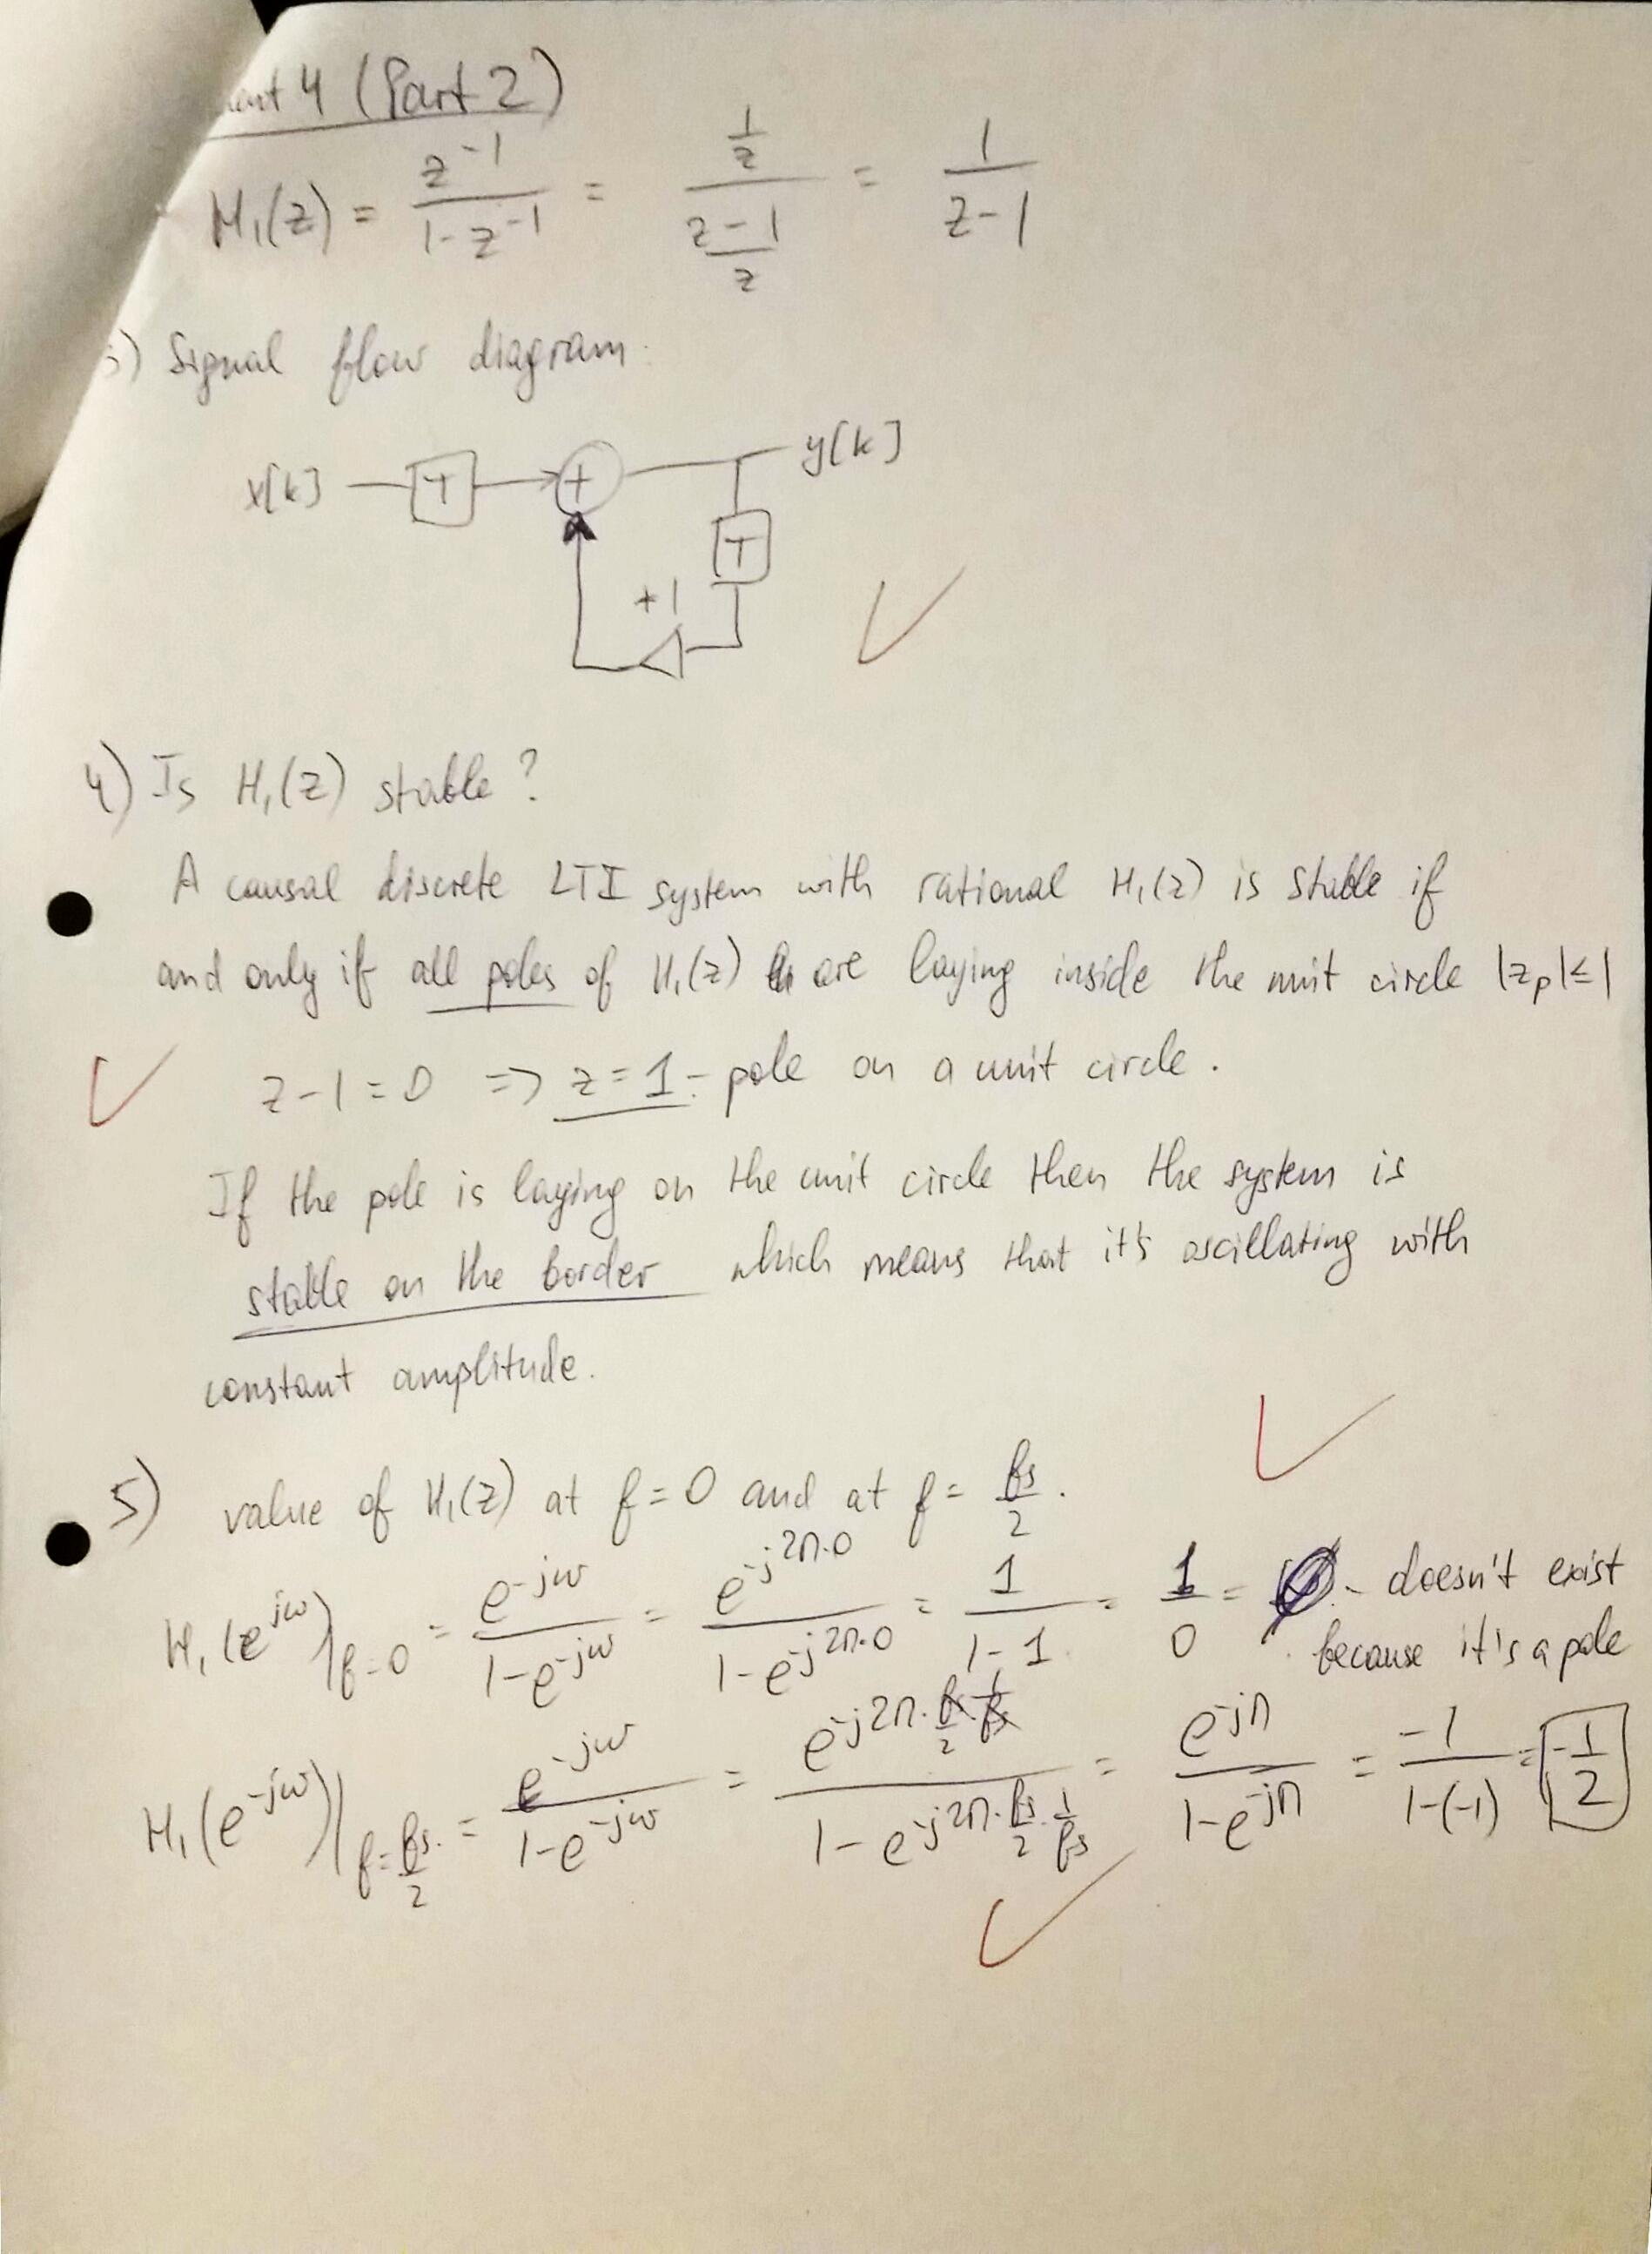 4 (Part 2)
H₁(z) = z⁻¹ / (1 - z⁻¹) = (1/z) / ((z - 1)/z) = 1 / (z - 1)
) Signal flow diagram:
x[k] T + y[k]
T
+1
4) Is H₁(z) stable?
A causal discrete LTI system with rational H₁(z) is stable if
and only if all poles of H₁(z) are laying inside the unit circle |zₚ| ≤ 1
z - 1 = 0 => z = 1 - pole on a unit circle.
If the pole is laying on the unit circle then the system is
stable on the border which means that it's oscillating with
constant amplitude.
5) value of H₁(z) at f = 0 and at f = fs/2.
H₁(e^jω)|f=0 = e^-jω / (1 - e^-jω) = e^-j2π·0 / (1 - e^-j2π·0) = 1 / (1 - 1) = 1/0 = - doesn't exist
because it's a pole
H₁(e^-jω)|f=fs/2 = e^-jω / (1 - e^-jω) = e^-j2π·fs/2·1/fs / (1 - e^-j2π·fs/2·1/fs) = e^-jπ / (1 - e^-jπ) = -1 / (1-(-1)) = -1/2